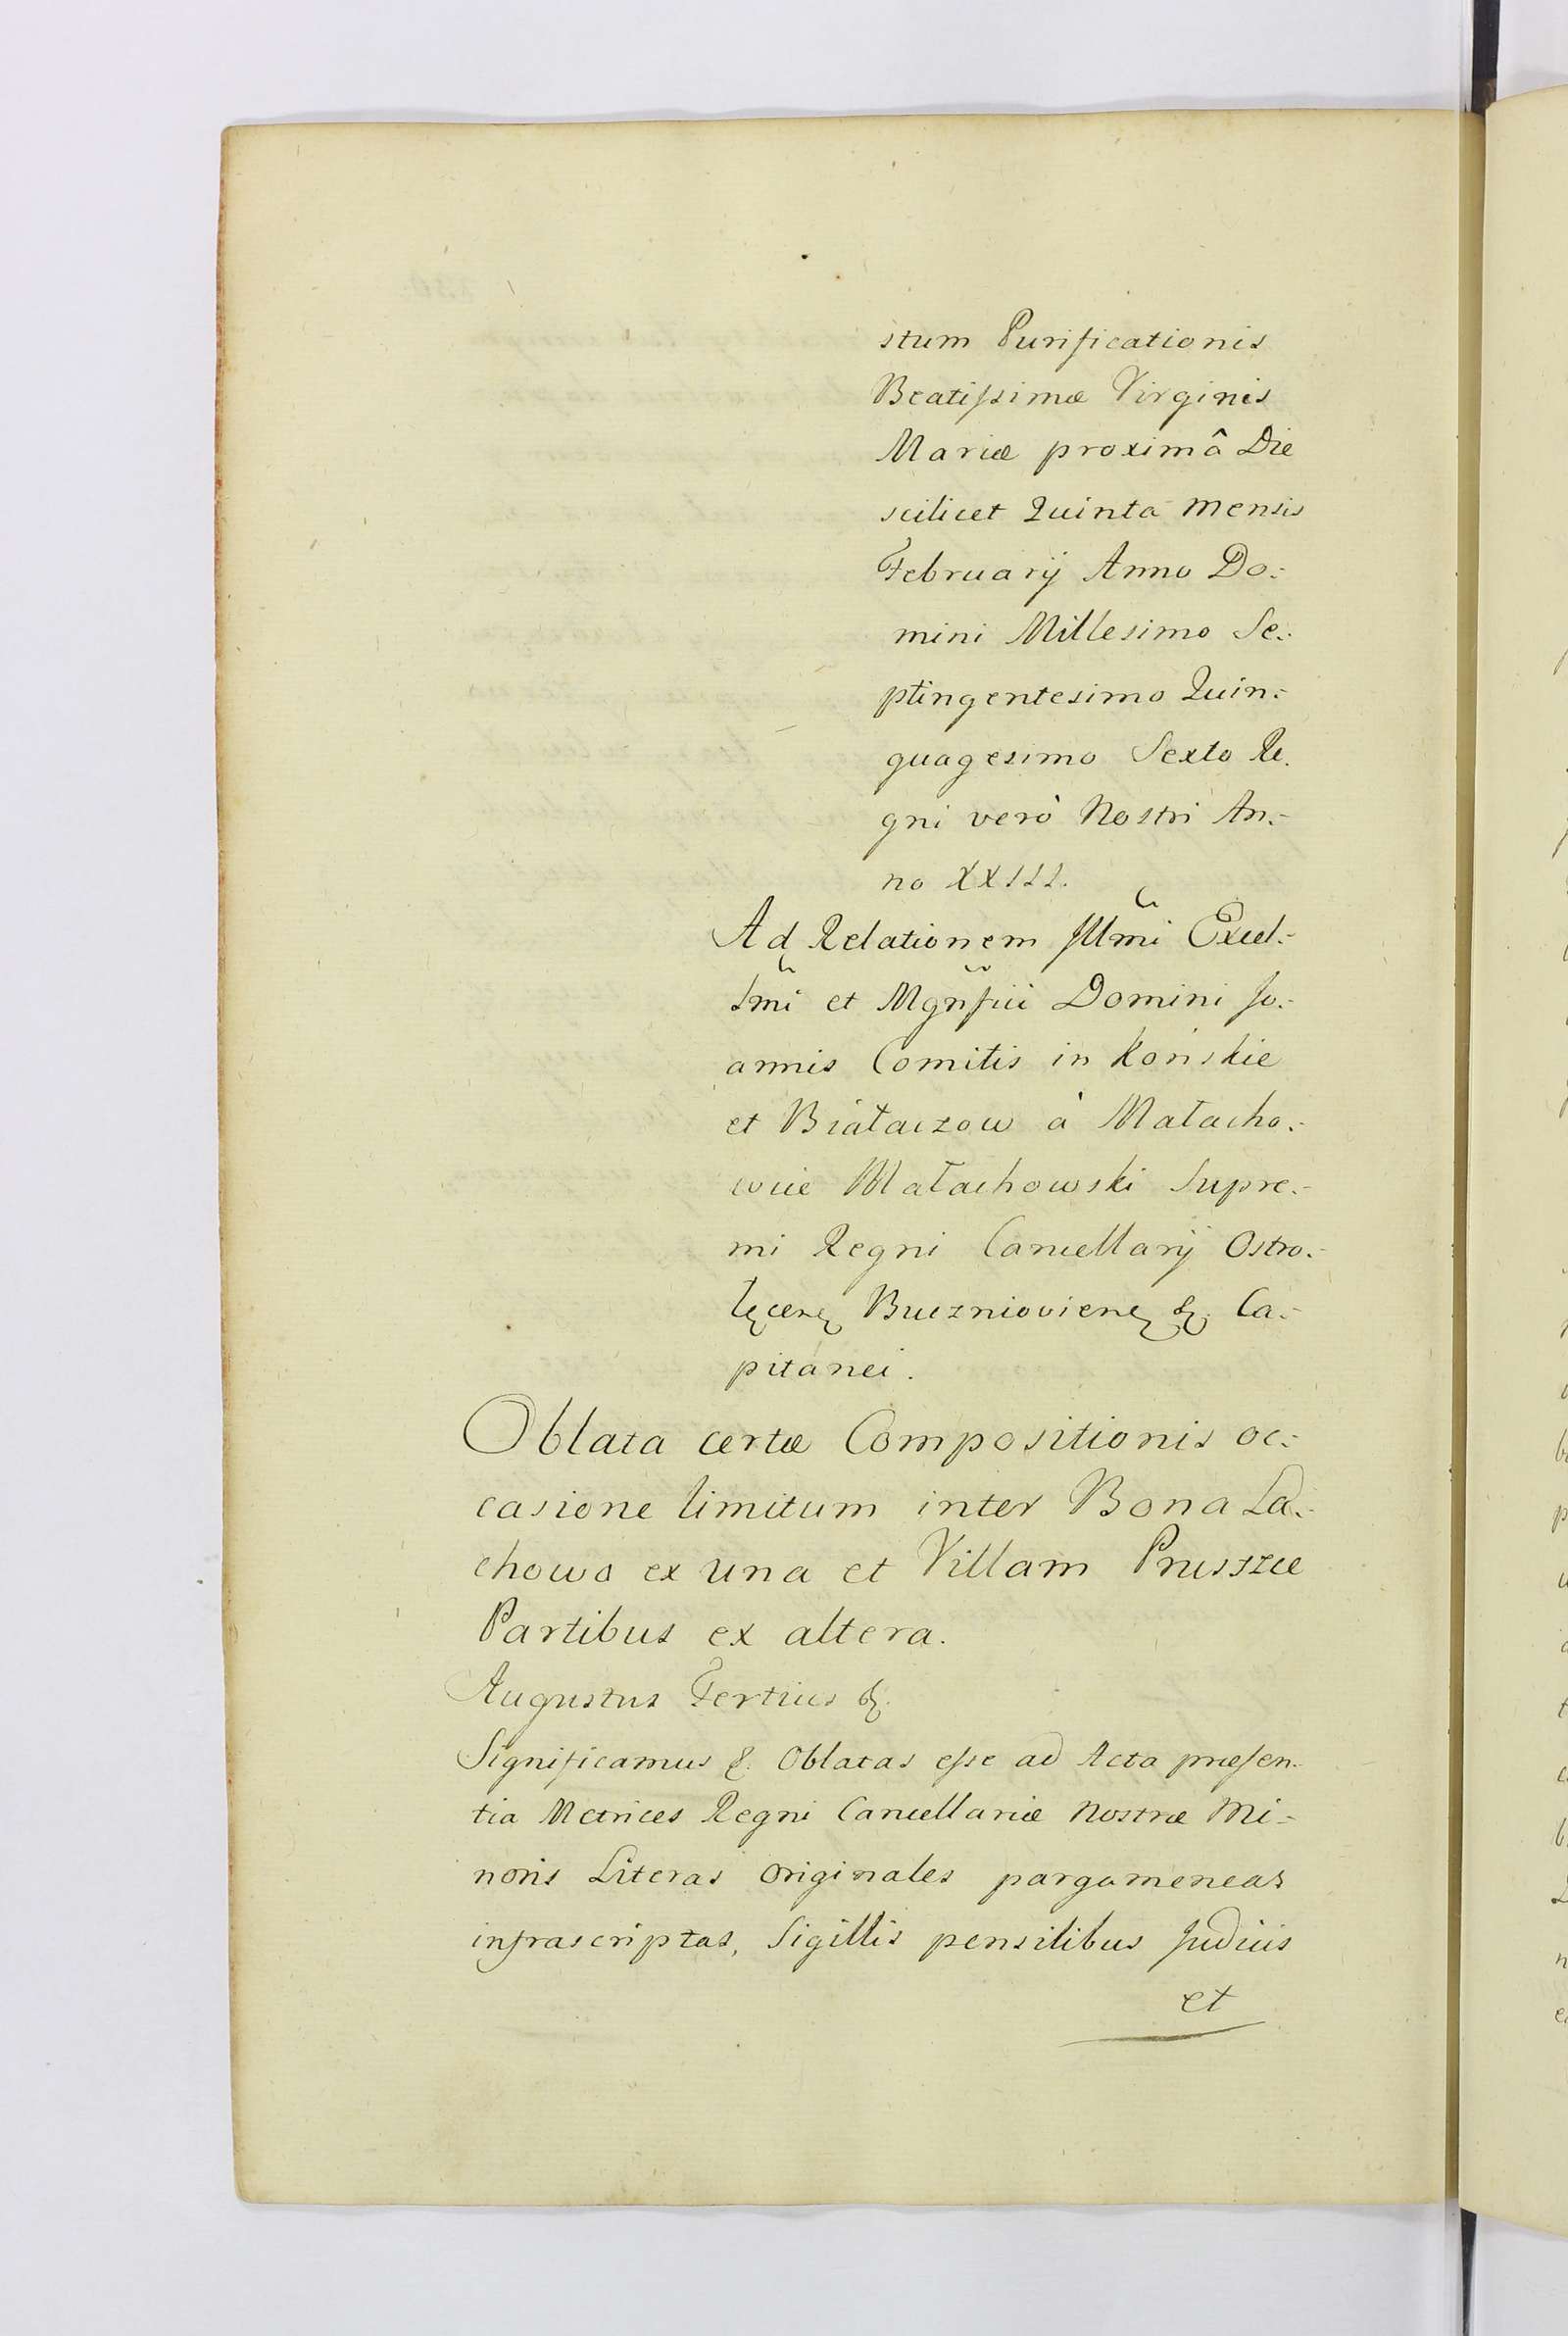 stum Purificationis
Beatissimæ Virginis
Mariæ proximâ Die
scilicet Quinta Mensis
Februarÿ Anno Do:
mini Millesimo Se:
ptingentesimo Quin:
quagesimo Sexto Re.
gni verò Nostri An:
no XXIII.
Ad Relationem Jllmi Excel:
lmi et Mgnfici Domini Jo:
annis Comitis in Końskie
et Białaczow à Małacho:
wice Małachowski Supre:
mi Regni Cancellarÿ Ostro:
łęcen Buczniovien &. Ca:
pitanei.
Oblata certæ Compositionis oc:
casione limitum inter Bona La:
chowo ex una et Villam Prusszce
Partibus ex altera.
Augustus Tertius &.
Significamus &. Oblatas esse ad Acta præsen
tia Metrices Regni Cancellariæ Nostræ Mi-
noris Literas originales pargameneas
infrascriptas, Sigillis pensilibus Judicis
et